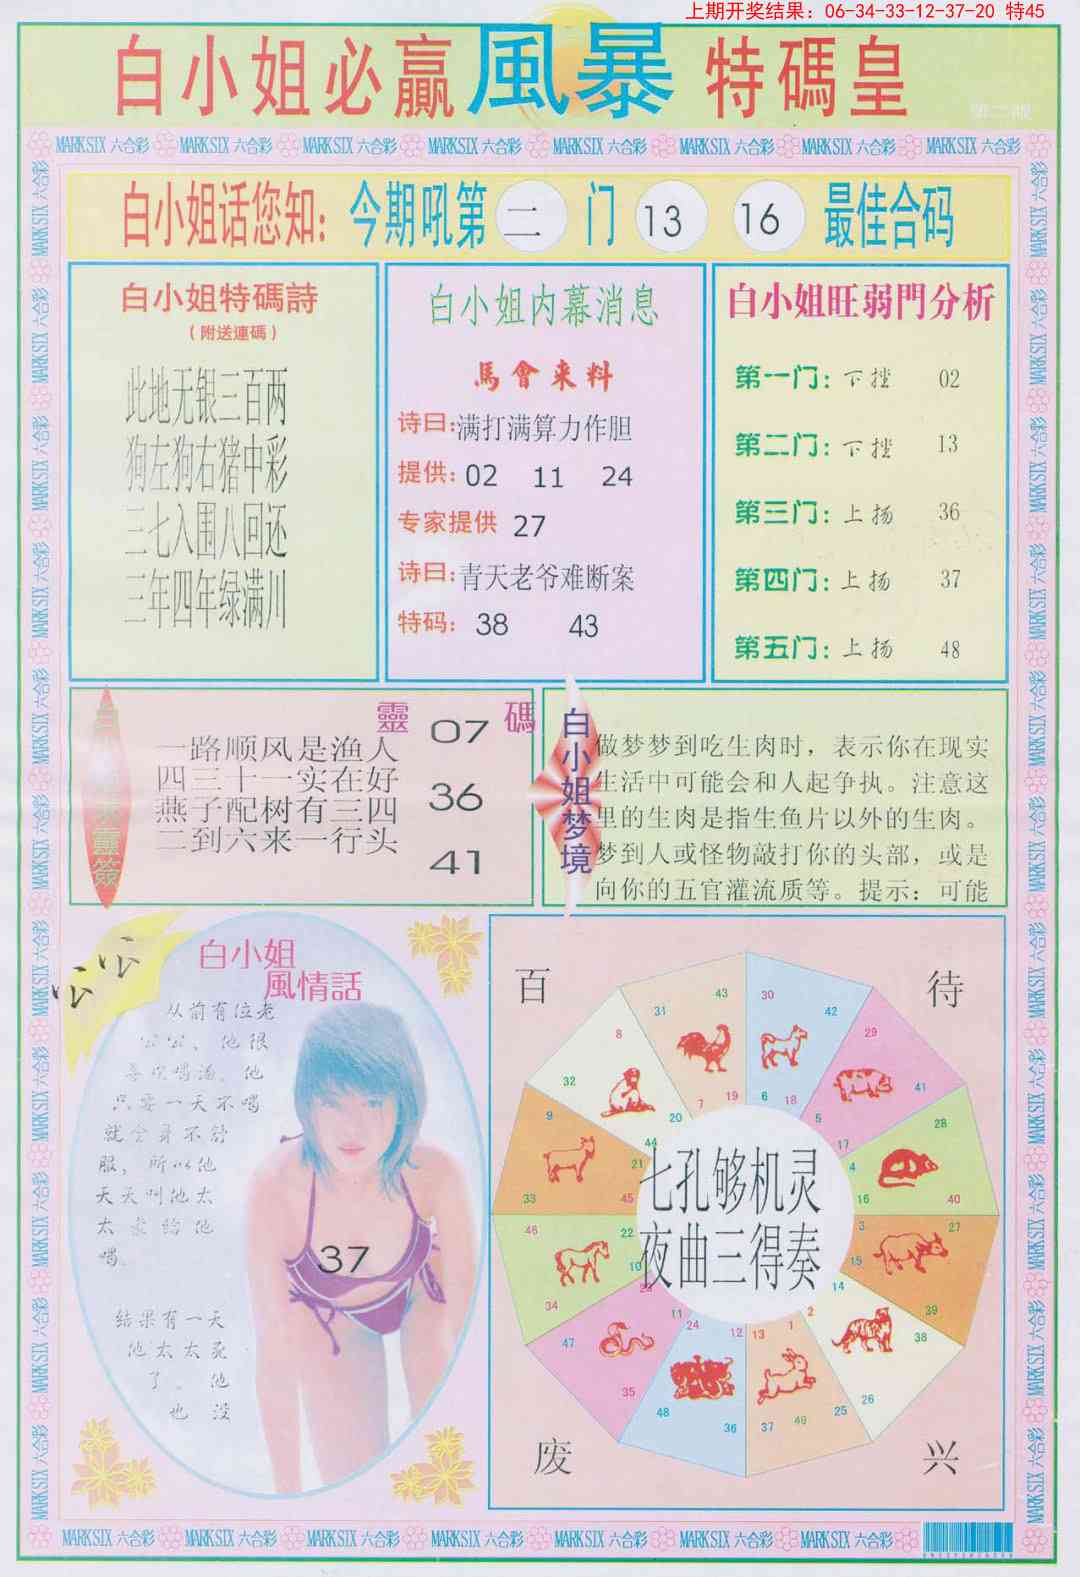 上期开奖结果：06-34-33-12-37-20 特45
白小姐必贏風暴特碼皇
MARK SIX 六合彩 MARK SIX 六合彩 MARK SIX 六合彩 MARK SIX 六合彩 MARK SIX 六合彩 MARK SIX 六合彩 MARK SIX 六合彩 MARK SIX 六合彩
白小姐话您知：今期吼第 二 门 13 16 最佳合码
白小姐特碼詩
（附送連碼）
此地无银三百两
狗左狗右猪中彩
三七入围八回还
三年四年绿满川
白小姐内幕消息
馬會来料
诗曰:满打满算力作胆
提供: 02 11 24
专家提供 27
诗曰:青天老爷难断案
特码: 38 43
白小姐旺弱門分析
第一门: 下挫 02
第二门: 下挫 13
第三门: 上扬 36
第四门: 上扬 37
第五门: 上扬 48
靈碼
一路顺风是渔人
四三十一实在好
燕子配树有三四
二到六来一行头
07
36
41
白小姐梦境
做梦梦到吃生肉时，表示你在现实
生活中可能会和人起争执。注意这
里的生肉是指生鱼片以外的生肉。
梦到人或怪物敲打你的头部，或是
向你的五官灌流质等。提示：可能
白小姐
風情話
从前有位老
公公、他很
喜欢喝酒。他
只要一天不喝
就全身不舒
服，所以他
天天叫他太
太拿给他
喝。
结果有一天
他太太死
了。他
也没
37
百 待
废 兴
七孔够机灵
夜曲三得奏
7 19 31 43
6 18 30 42
5 17 29 41
4 16 28 40
3 15 27 39
2 14 26 38
1 13 25 37 49
12 24 36 48
11 23 35 47
10 22 34 46
9 21 33 45
8 20 32 44
MARK SIX 六合彩 MARK SIX 六合彩 MARK SIX 六合彩 MARK SIX 六合彩 MARK SIX 六合彩 MARK SIX 六合彩 MARK SIX 六合彩